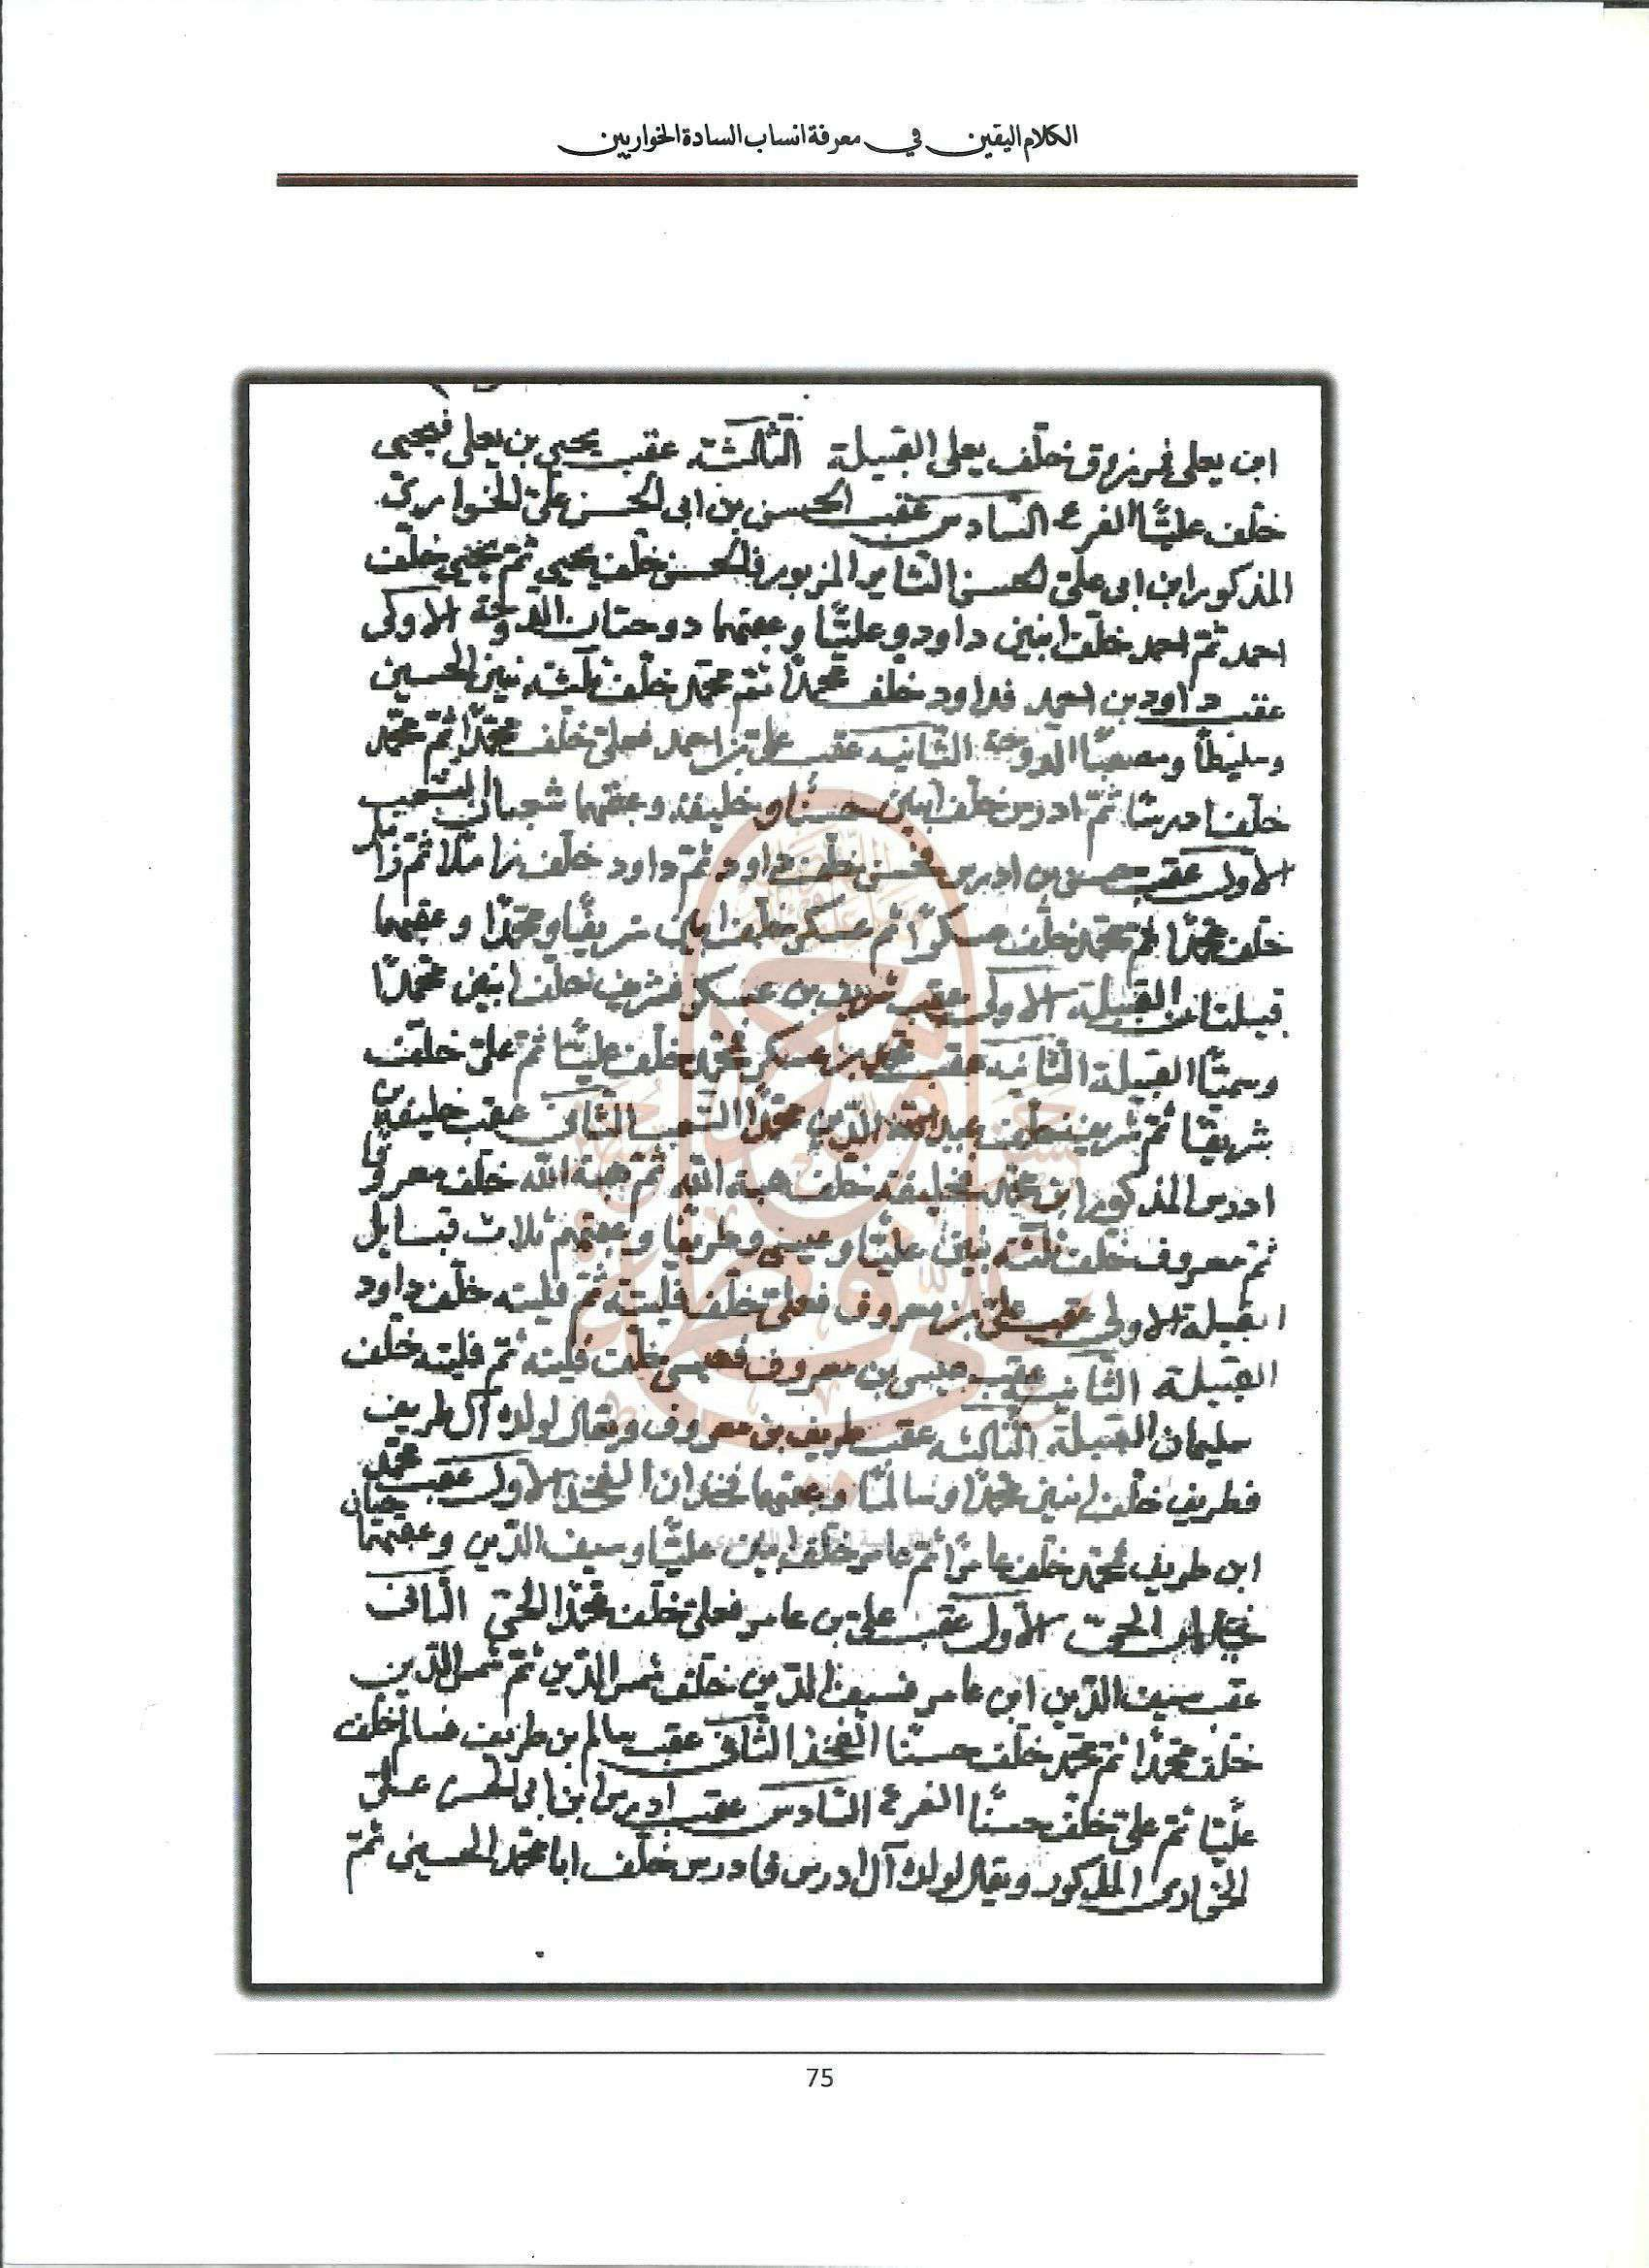 الكلام اليقين في معرفة انساب السادة الخواريين
ابن يعلى فمرزوق خلّف يعلى القبيلة الثالثة عقب يحيى بن يعلى فيحيى
خلّف عليًّا الفرع السادس عقب الحسن بن ابى الحسن علىّ الخوارىّ
المذكور ابن ابى علىّ الحسن الثاير المزبور فالحسن خلّف يحيى ثمّ يحيى خلّف
احمد ثمّ احمد خلّف ابنين داود وعليًّا وعقبهما دوحتان الدوحة الاولى
عقب داود بن احمد فداود خلّف محمّدًا ثمّ محمّد خلّف ثلثة بنين الحسين
وسليطاً ومصعبًا الدوحة الثانيه عقب علىّ بن احمد فعلىّ خلّف محمّدًا ثمّ محمّد
خلّف ادريسًا ثمّ ادريس خلّف ابنين حسنًا و خليفة وعقبهما شعبان الشعب
الاول عقب حسن بن ادريس فحسن خلّف داود ثمّ داود خلّف زاملا ثمّ زامل
خلّف محمّدًا ثمّ محمّد خلّف عسكرًا ثم عسكر خلّف ابنين شريفًا ومحمّدًا وعقبهما
قبيلتان القبيلة الاولى عقب شريف بن عسكر فشريف خلّف ابنين محمّدًا
و القبيلة الثانيه عقب محمّد بن عسكر فمحمّد خلّف عليًّا ثمّ علىّ خلّف
شريفًا ثمّ شريف خلّف الدّين محمّدًا الشعب الثانى عقب خليفة بن
ادريس المذكور ابن محمّد فخليفة خلّف هبة الله ثمّ هبة الله خلّف معروفًا
ثمّ معروف خلّف ثلثة بنين عليًّا وعيسى وطريفًا وعقبهم ثلاث قبايل
القبيلة الاولى عقب علىّ بن معروف فعلىّ خلّف فليتة ثمّ فليته خلّف داود
القبيلة الثانيه عقب عيسى بن معروف فعيسى خلّف فليته ثمّ فليته خلّف
سليمان القبيلة الثالثه عقب طريف بن معروف ويقال لولده آل طريف
فطريف خلّف ابنين محمّدًا وسالمًا وعقبهما فخذان الفخذ الاول عقب محمّد
ابن طريف فمحمّد خلّف عامرًا ثمّ عامر خلّف ابنين عليًّا وسيف الدّين وعقبهما حيان
الحىّ الاول عقب علىّ بن عامر فعلىّ خلّف محمّدًا الحىّ الثانى
عقب سيف الدّين ابن عامر فسيف الدّين خلّف شمس الدّين ثمّ شمس الدّين
خلّف محمّدًا ثمّ محمّد خلّف حسنًا الفخذ الثانى عقب سالم بن طريف فسالم خلّف
عليًّا ثمّ علىّ خلّف حسنًا الفرع السادس عقب ادريس ابن ابى الحسن علىّ
الخوارى المذكور ويقال لولده آل ادريس فادريس خلّف ابا محمّد الحسين ثمّ
75